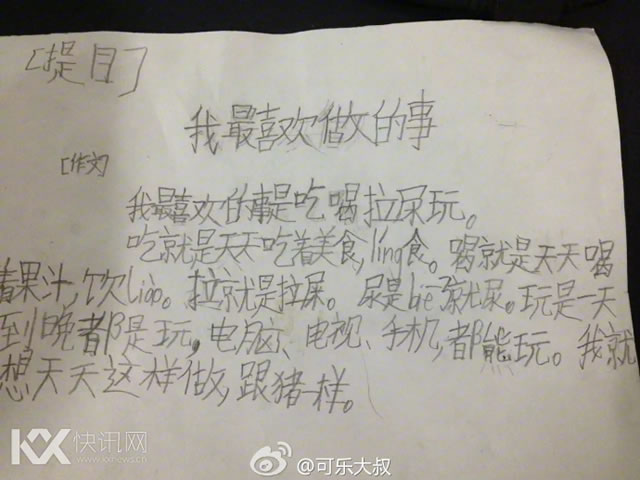 [提目]
我最喜欢做的事
[作文]
我最喜欢的事是吃喝拉尿玩。
吃就是天天吃着美食,ling食。喝就是天天喝
着果汁,饮liao。拉就是拉屎。尿是bie了就尿。玩是一天
到晚都是玩,电脑、电视、手机,都能玩。我就
想天天这样做,跟猪一样。
KX 快讯网
www.kxnews.cn
@可乐大叔